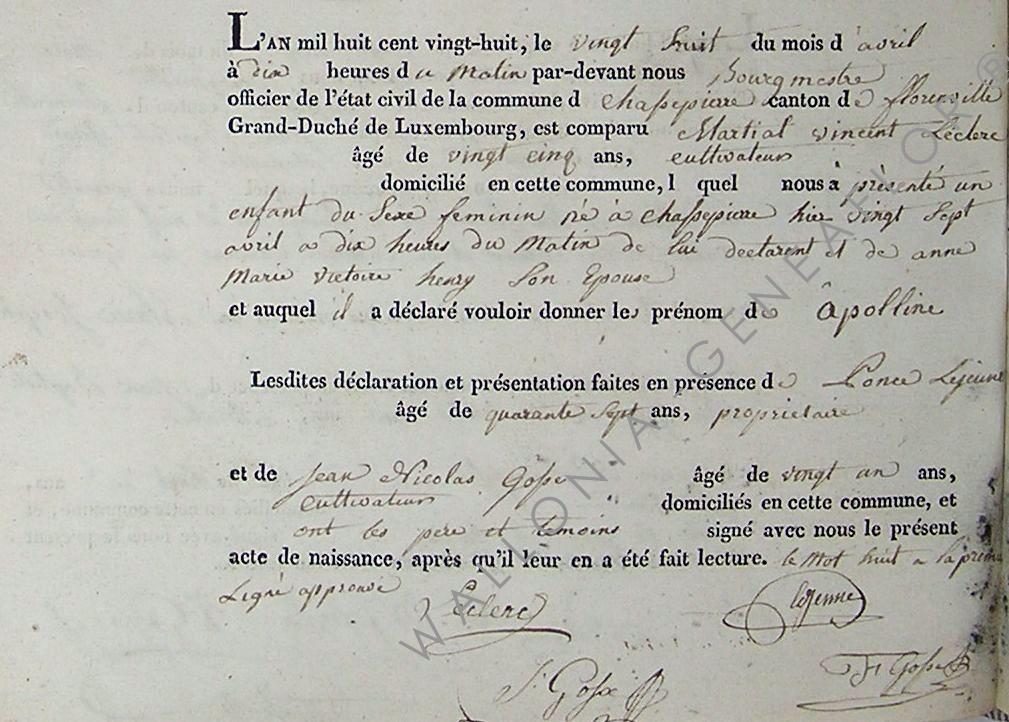 L'AN mil huit cent vingt-huit, le vingt huit du mois d'avril
à dix heures du Matin par-devant nous Bourgmestre
officier de l'état civil de la commune d chassepierre canton de florenville
Grand-Duché de Luxembourg, est comparu Martial vincent Leclerc
âgé de vingt cinq ans, cultivateur
domicilié en cette commune, l quel nous à présenté un
enfant du Sexe feminin né à chassepierre hier vingt Sept
avril a dix heures du Matin de lui declarent et de anne
Marie victoire henry Son Epouse
et auquel il a déclaré vouloir donner les prénom de âpolline
Lesdites déclaration et présentation faites en présence de Ponce Lejeune
âgé de quarante Sept ans, proprietaire
et de jean Nicolas Gosse âgé de vingt un ans,
cultivateur domiciliés en cette commune, et
ont les pere et temoins signé avec nous le présent
acte de naissance, après qu'il leur en a été fait lecture. le Mot huit a la prem
Ligne approuvé
Leclerc Lejeune
J. Gosse Gosse
WALLONIA GENEA